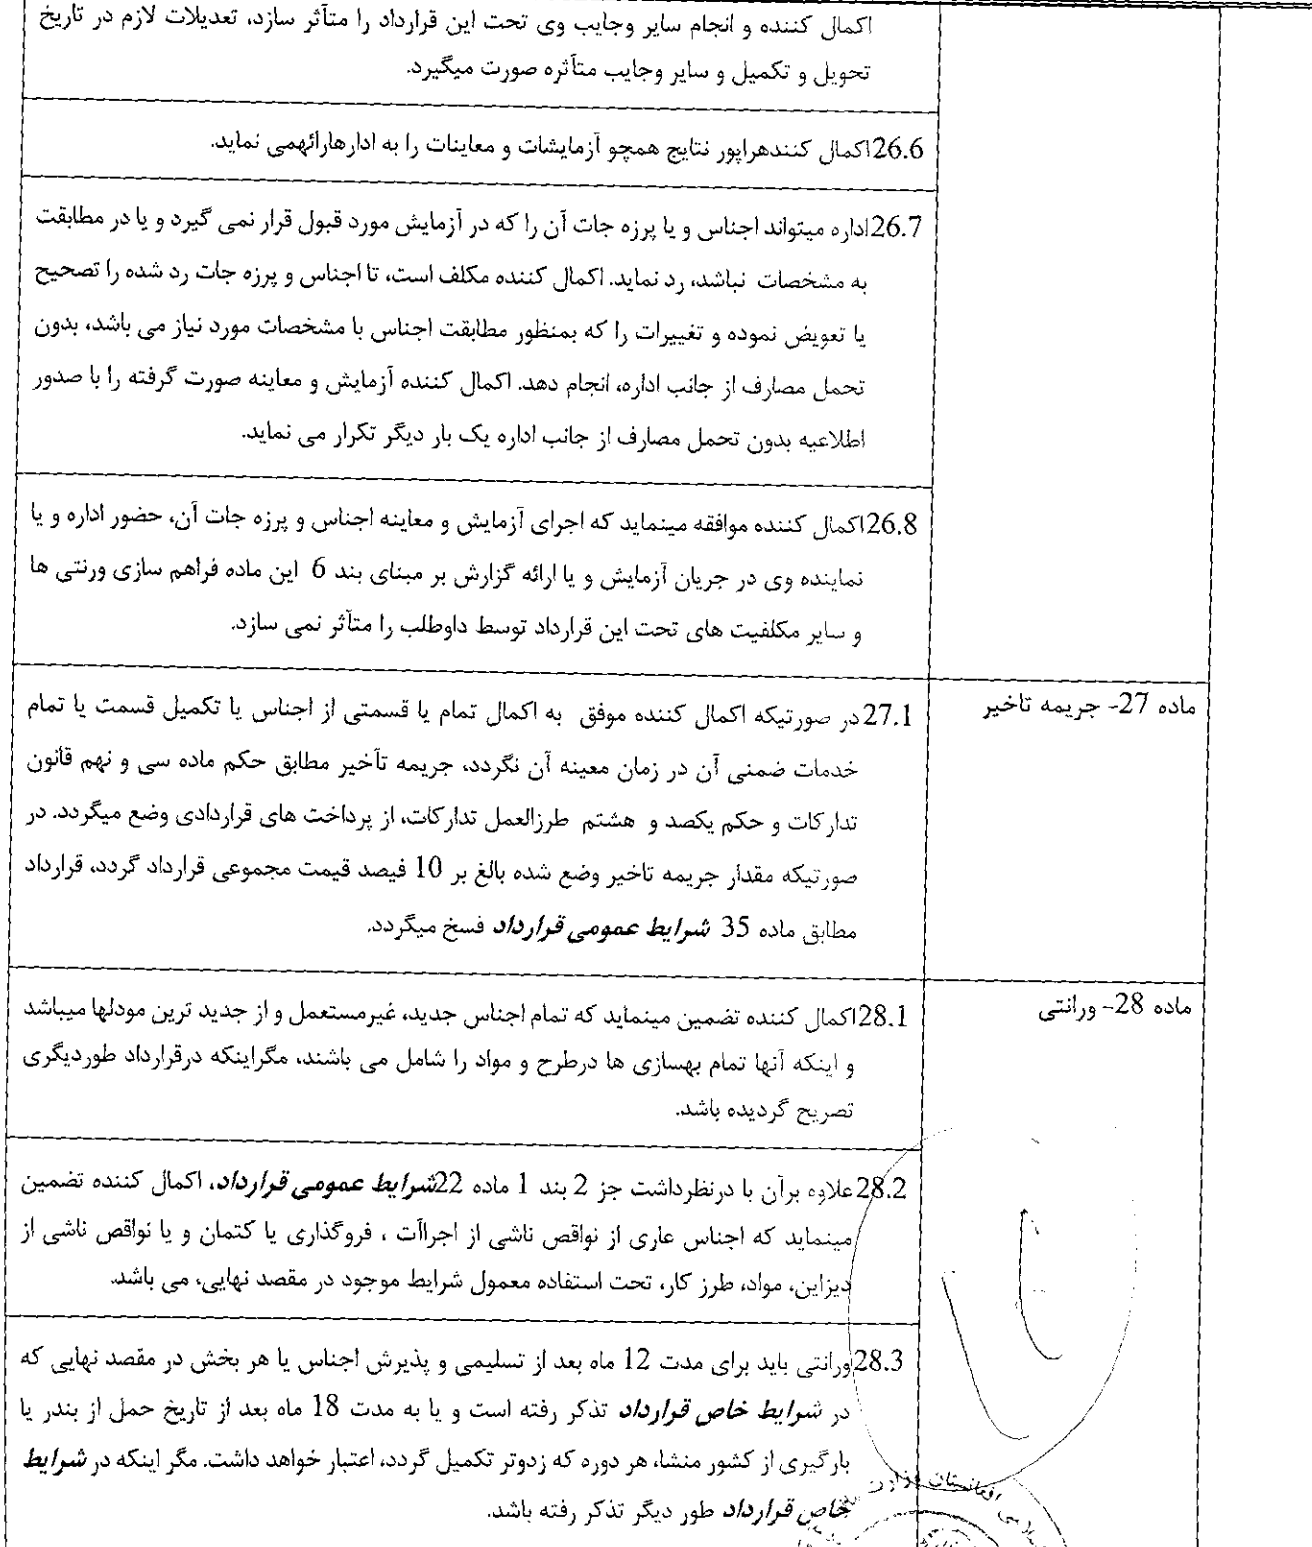 اکمال کننده و انجام سایر وجایب وی تحت این قرارداد را متأثر سازد، تعدیلات لازم در تاریخ
تحویل و تکمیل و سایر وجایب متأثره صورت میگیرد.
26.6اکمال کنندهراپور نتایج همچو آزمایشات و معاینات را به ادارهارائهمی نماید.
26.7اداره میتواند اجناس و یا پرزه جات آن را که در آزمایش مورد قبول قرار نمی گیرد و یا در مطابقت
به مشخصات نباشد، رد نماید. اکمال کننده مکلف است، تا اجناس و پرزه جات رد شده را تصحیح
یا تعویض نموده و تغییرات را که بمنظور مطابقت اجناس با مشخصات مورد نیاز می باشد، بدون
تحمل مصارف از جانب اداره، انجام دهد. اکمال کننده آزمایش و معاینه صورت گرفته را با صدور
اطلاعیه بدون تحمل مصارف از جانب اداره یک بار دیگر تکرار می نماید.
26.8اکمال کننده موافقه مینماید که اجرای آزمایش و معاینه اجناس و پرزه جات آن، حضور اداره و یا
نماینده وی در جریان آزمایش و یا ارائه گزارش بر مبنای بند 6 این ماده فراهم سازی ورنتی ها
و سایر مکلفیت های تحت این قرارداد توسط داوطلب را متأثر نمی سازد.
ماده 27- جریمه تاخیر
27.1در صورتیکه اکمال کننده موفق به اکمال تمام یا قسمتی از اجناس یا تکمیل قسمت یا تمام
خدمات ضمنی آن در زمان معینه آن نگردد، جریمه تأخیر مطابق حکم ماده سی و نهم قانون
تدارکات و حکم یکصد و هشتم طرزالعمل تدارکات، از پرداخت های قراردادی وضع میگردد. در
صورتیکه مقدار جریمه تاخیر وضع شده بالغ بر 10 فیصد قیمت مجموعی قرارداد گردد، قرارداد
مطابق ماده 35 شرایط عمومی قرارداد فسخ میگردد.
ماده 28- ورانتی
28.1اکمال کننده تضمین مینماید که تمام اجناس جدید، غیرمستعمل و از جدید ترین مودلها میباشد
و اینکه آنها تمام بهسازی ها درطرح و مواد را شامل می باشند، مگراینکه درقرارداد طوردیگری
تصریح گردیده باشد.
28.2علاوه برآن با درنظرداشت جز 2 بند 1 ماده 22شرایط عمومی قرارداد، اکمال کننده تضمین
مینماید که اجناس عاری از نواقص ناشی از اجراآت ، فروگذاری یا کتمان و یا نواقص ناشی از
دیزاین، مواد، طرز کار، تحت استفاده معمول شرایط موجود در مقصد نهایی، می باشد.
28.3ورانتی باید برای مدت 12 ماه بعد از تسلیمی و پذیرش اجناس یا هر بخش در مقصد نهایی که
در شرایط خاص قرارداد تذکر رفته است و یا به مدت 18 ماه بعد از تاریخ حمل از بندر یا
بارگیری از کشور منشا، هر دوره که زدوتر تکمیل گردد، اعتبار خواهد داشت. مگر اینکه در شرایط
خاص قرارداد طور دیگر تذکر رفته باشد.
افغانستان وزارت